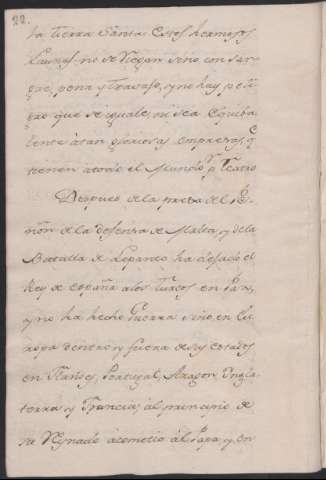 22.
la tierra Santa: Estos hermosos
Laureos no se Niegan sino con San-
gre, pena y travajo, y no hay peli-
gro que se iguale, ni sea equiba-
lente à tan gloriosas empresas, q
tienen atodo el Mundo pr Teatro
Despues de la presa del Pe-
ñon de la defensa de Malta, y de la
Batalla de Lepanto ha dejado el
Rey de España alos Turcos en Paz,
y no ha hecho Guerra sino en Eu-
ropa dentro y fuera de sus estados
en Flandes, Portugal, Aragon, Ingla-
terra y Francia; al principio de
su Reynado acometio al Papa, y en